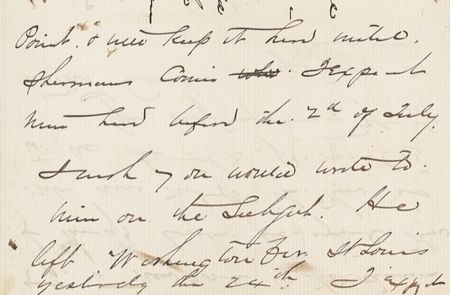 Point. & will keep it here until.
Shermans Comes who. I expect
him here before the. 2d of July.
I wish you would write to.
him on the Subject. He
left Washington for St Louis
yesterday the 24th. I expect